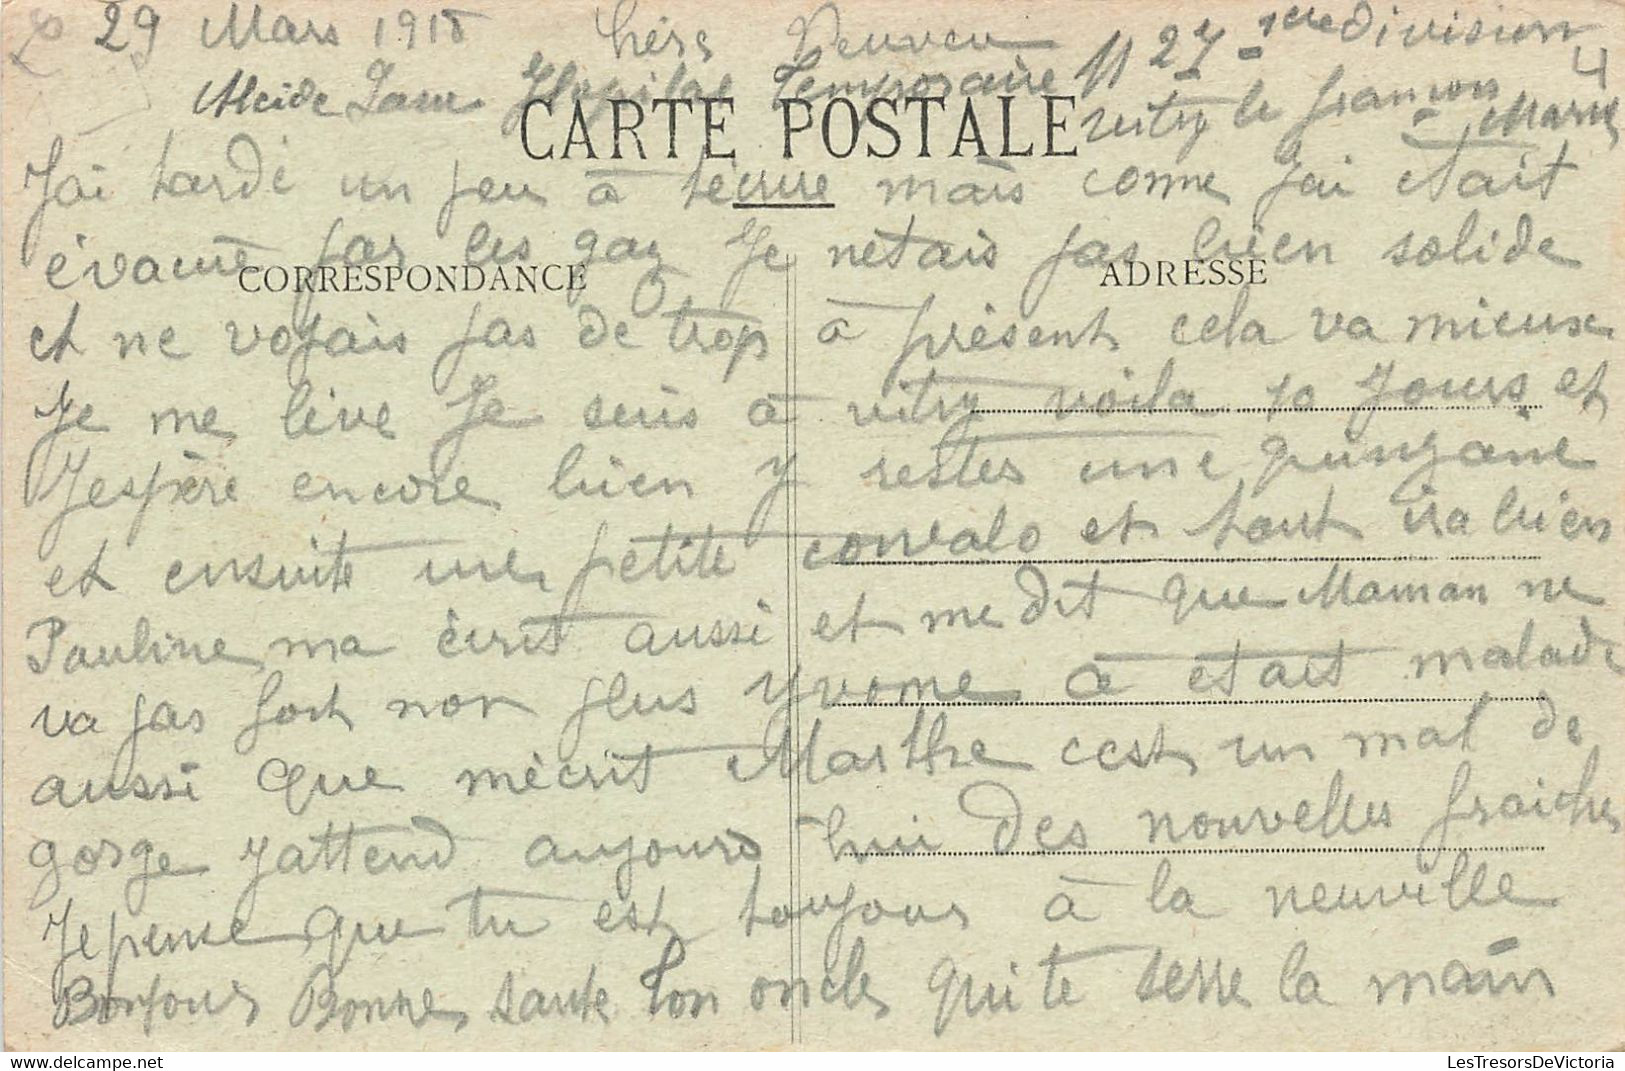 29 Mars 1918 chère Neuveu
11 27 1ere division
Alcide Hopital Temporaire vitry le françois
Marne
CARTE POSTALE
Jai tardé un peu à técrire mais come jai était
évacué par les gaz Je netais pas bien solide
CORRESPONDANCE ADRESSE
et ne voyais pas de trop à présent cela va mieux
Je me lève Je suis à vitry voila 10 Jours et
Jespère encore bien y restes une quinzaine
et ensuite une petite convalo et tout ira bien
Pauline ma écrit aussi et me dit que Maman ne
va pas fort non plus yvonne à etait malade
aussi que mécrit Marthe cest un mal de
gorge Jattend aujours hui des nouvelles fraiches
Je pense que tu est toujours à la neuville
Bonjour Bonne sante Ton oncle qui te serre la main
LesTresorsDeVictoria